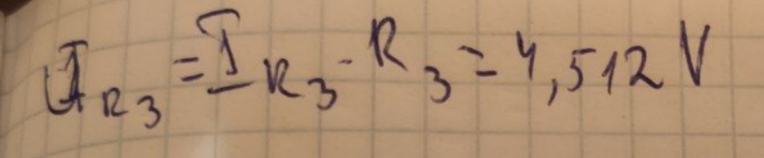 U_{R3} = I_{R3} · R_3 = 4,512 V